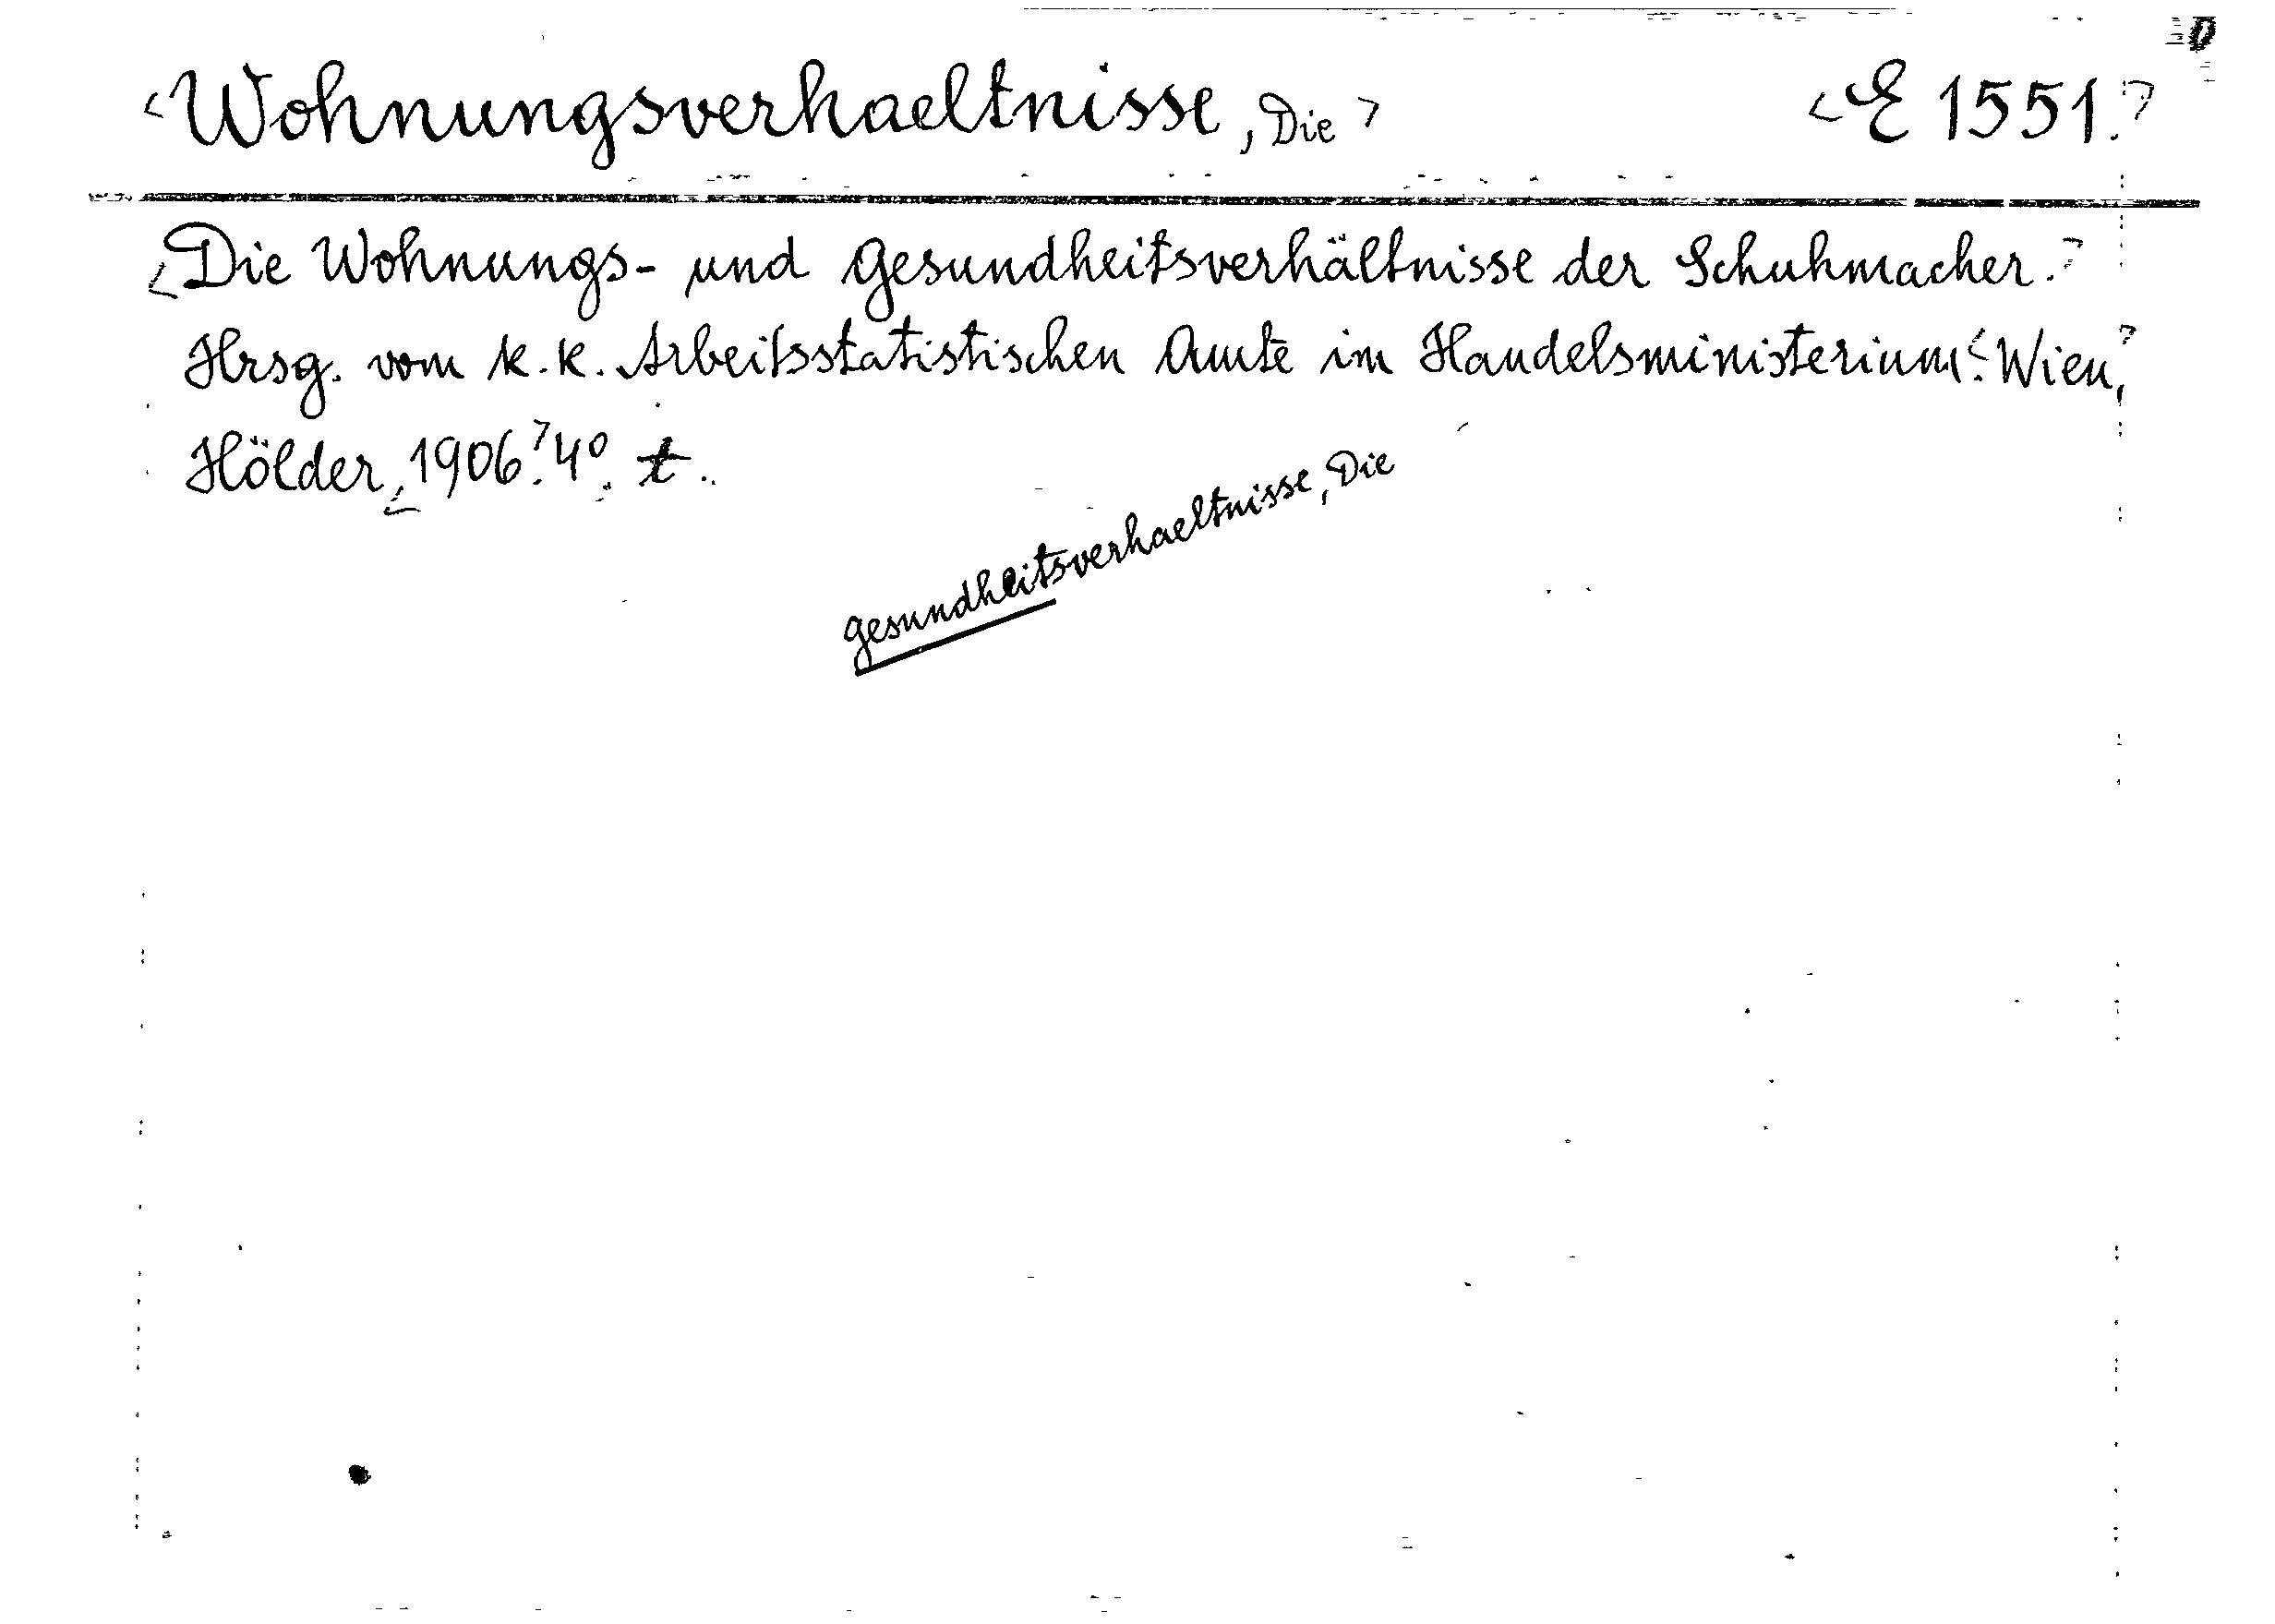 <Wohnungsverhaeltnisse, Die> <E 1551.>
<Die Wohnungs- und Gesundheitsverhältnisse der Schuhmacher.>
Hrsg. vom k.k. Arbeitsstatistischen Amte im Handelsministerium.<Wien,>
Hölder,<1906.>4°. t.
Gesundheitsverhaeltnisse, Die